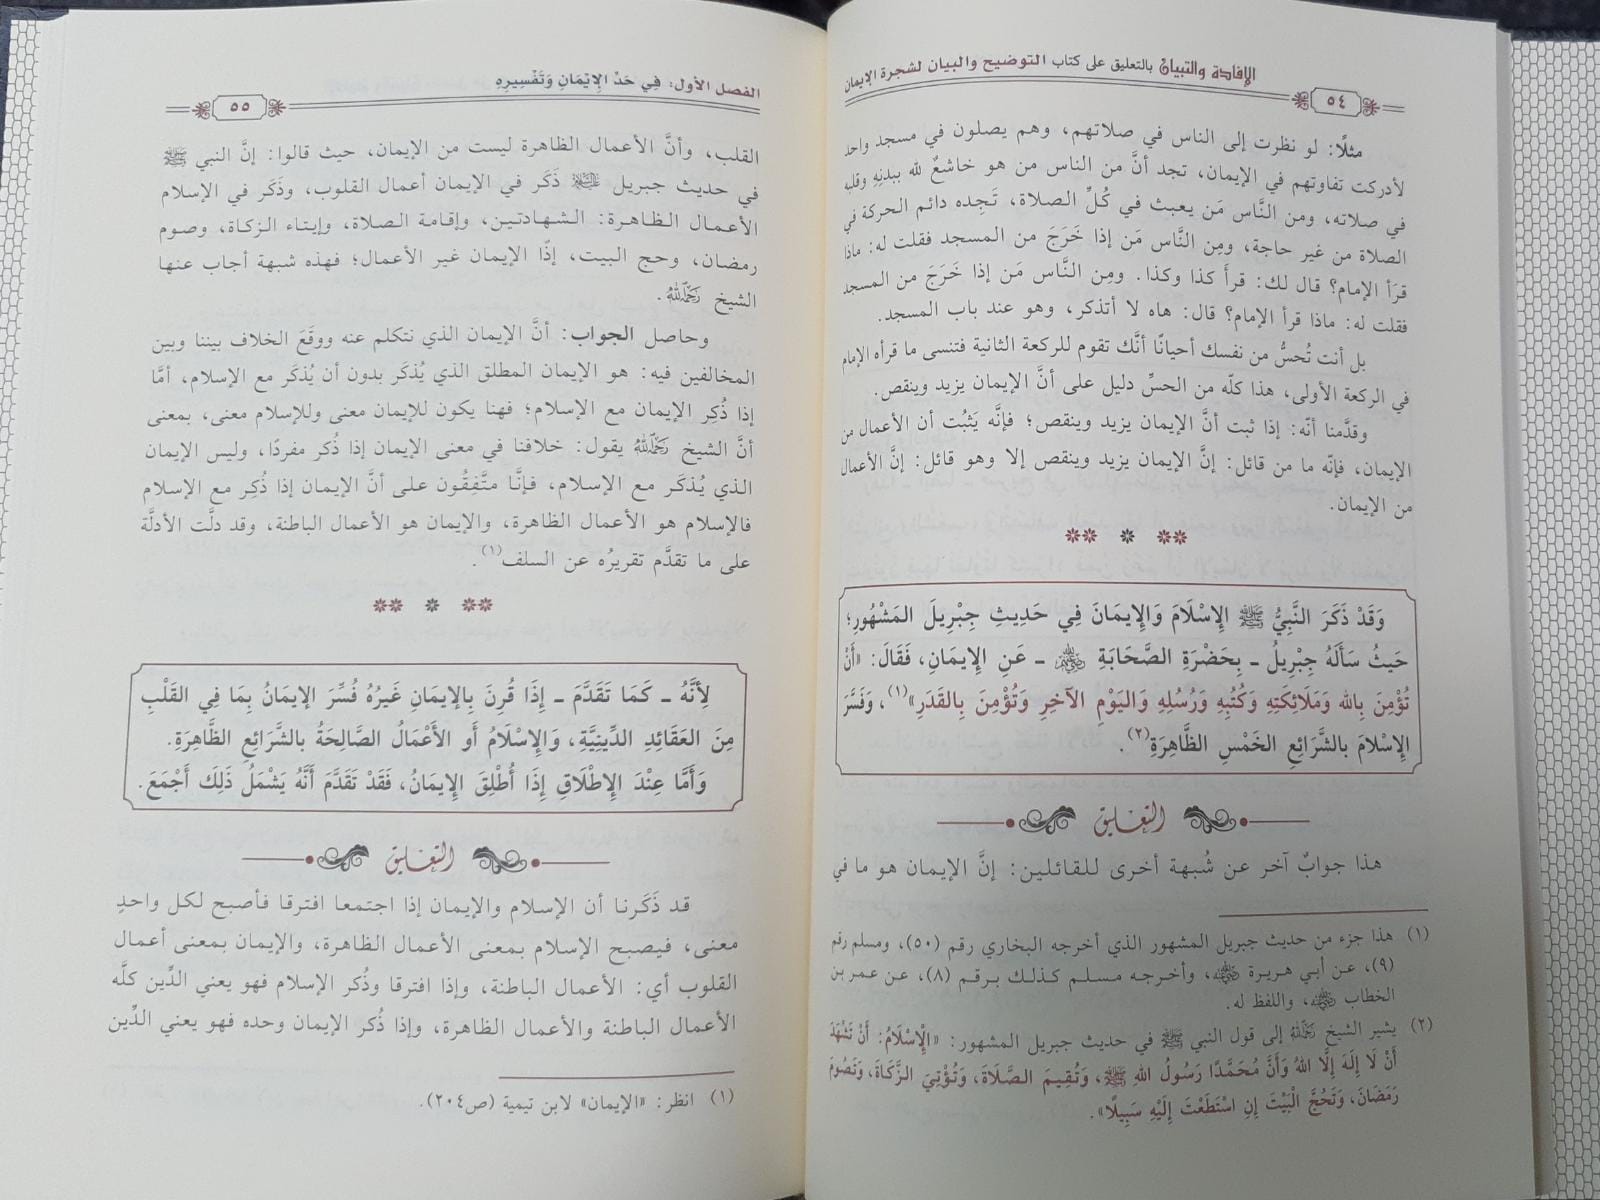 الإفادة والتبيان بالتعليق على كتاب التوضيح والبيان لشجرة الإيمان
٥٤
مثلًا: لو نظرت إلى الناس في صلاتهم، وهم يصلون في مسجد واحد
لأدركت تفاوتهم في الإيمان، تجد أنَّ من الناس من هو خاشعٌ لله ببدنِهِ وقلبه
في صلاته، ومن النَّاس مَن يعبث في كُلِّ الصلاة، تَجِده دائم الحركة في
الصلاة من غير حاجة، ومِن النَّاس مَن إذا خَرَجَ من المسجد فقلت له: ماذا
قرَأ الإمام؟ قال لك: قرأَ كذا وكذا. ومِن النَّاس مَن إذا خَرَجَ من المسجد
فقلت له: ماذا قرأ الإمام؟ قال: هاه لا أتذكر، وهو عند باب المسجد.
بل أنت تُحسُّ من نفسك أحيانًا أنَّك تقوم للركعة الثانية فتنسى ما قرأه الإمام
في الركعة الأولى، هذا كلّه من الحسِّ دليل على أنَّ الإيمان يزيد وينقص.
وقدَّمنا أنّه: إذا ثبت أنَّ الإيمان يزيد وينقص؛ فإنَّه يَثبُت أن الأعمال من
الإيمان، فإنّه ما من قائل: إنَّ الإيمان يزيد وينقص إلا وهو قائل: إنَّ الأعمال
من الإيمان.
وَقَدْ ذَكَرَ النَّبِيُّ ﷺ الإِسْلَامَ وَالإِيمَانَ فِي حَدِيثِ جِبْرِيلَ المَشْهُورِ؛
حَيثُ سَأَلَهُ جِبْرِيلُ ـ بِحَضْرَةِ الصَّحَابَةِ ﵃ ـ عَنِ الإِيمَانِ، فَقَالَ: «أَنْ
تُؤْمِنَ بِالله وَمَلَائِكَتِهِ وَكُتُبِهِ وَرُسُلِهِ وَاليَوْمِ الآخِرِ وَتُؤْمِنَ بِالقَدَرِ»(١)، وَفَسَّرَ
الإِسْلَامَ بالشَّرَائِعِ الخَمْسِ الظَّاهِرَةِ(٢).
التعليق
هذا جوابٌ آخر عن شُبهة أخرى للقائلين: إنَّ الإيمان هو ما في
(١) هذا جزء من حديث جبريل المشهور الذي أخرجه البخاري رقم (٥٠)، ومسلم رقم
(٩)، عن أبي هريرة ﵁، وأخرجه مسلم كذلك برقم (٨)، عن عمر بن
الخطاب ﵁، واللفظ له.
(٢) يشير الشيخ ﵀ إلى قول النبي ﷺ في حديث جبريل المشهور: «الْإِسْلَامُ: أَنْ تَشْهَدَ
أَنْ لَا إِلَهَ إِلَّا اللهُ وَأَنَّ مُحَمَّدًا رَسُولُ اللهِ ﷺ، وَتُقِيمَ الصَّلَاةَ، وَتُؤْتِيَ الزَّكَاةَ، وَتَصُومَ
رَمَضَانَ، وَتَحُجَّ الْبَيْتَ إِنِ اسْتَطَعْتَ إِلَيْهِ سَبِيلًا».
الفصل الأول: فِي حَدِّ الإِيْمَانِ وَتَفْسِيرِهِ
٥٥
القلب، وأنَّ الأعمال الظاهرة ليست من الإيمان، حيث قالوا: إنَّ النبي ﷺ
في حديث جبريل ﵇ ذَكَر في الإيمان أعمال القلوب، وذَكَر في الإسلام
الأعمال الظاهرة: الشهادتين، وإقامة الصلاة، وإيتاء الزكاة، وصوم
رمضان، وحج البيت، إذًا الإيمان غير الأعمال؛ فهذه شبهة أجاب عنها
الشيخ ﵀.
وحاصل الجواب: أنَّ الإيمان الذي نتكلم عنه ووقَعَ الخلاف بيننا وبين
المخالفين فيه: هو الإيمان المطلق الذي يُذكَر بدون أن يُذكَر مع الإسلام، أمَّا
إذا ذُكِر الإيمان مع الإسلام؛ فهنا يكون للإيمان معنى وللإسلام معنى، بمعنى
أنَّ الشيخ ﵀ يقول: خلافنا في معنى الإيمان إذا ذُكر مفردًا، وليس الإيمان
الذي يُذكَر مع الإسلام، فإنَّا متَّفِقُون على أنَّ الإيمان إذا ذُكِر مع الإسلام
فالإسلام هو الأعمال الظاهرة، والإيمان هو الأعمال الباطنة، وقد دلَّت الأدلَّة
على ما تقدَّم تقريرُه عن السلف(١).
لِأَنَّهُ ـ كَمَا تَقَدَّمَ ـ إِذَا قُرِنَ بِالإيمَانِ غَيْرُهُ فُسِّرَ الإِيمَانُ بِمَا فِي القَلْبِ
مِنَ العَقَائِدِ الدِّينِيَّةِ، وَالإِسْلَامُ أَو الأَعْمَالُ الصَّالِحَةُ بالشَّرَائِعِ الظَّاهِرَةِ.
وَأَمَّا عِنْدَ الإِطْلَاقِ إِذَا أُطْلِقَ الإِيمَانُ، فَقَدْ تَقَدَّمَ أَنَّهُ يَشْمَلُ ذَلِكَ أَجْمَعَ.
التعليق
قد ذَكَرنا أن الإسلام والإيمان إذا اجتمعا افترقا فأصبح لكل واحدٍ
معنى، فيصبح الإسلام بمعنى الأعمال الظاهرة، والإيمان بمعنى أعمال
القلوب أي: الأعمال الباطنة، وإذا افترقا وذُكر الإسلام فهو يعني الدِّين كلَّه
الأعمال الباطنة والأعمال الظاهرة، وإذا ذُكر الإيمان وحده فهو يعني الدِّين
(١) انظر: «الإيمان» لابن تيمية (ص٢٠٤).